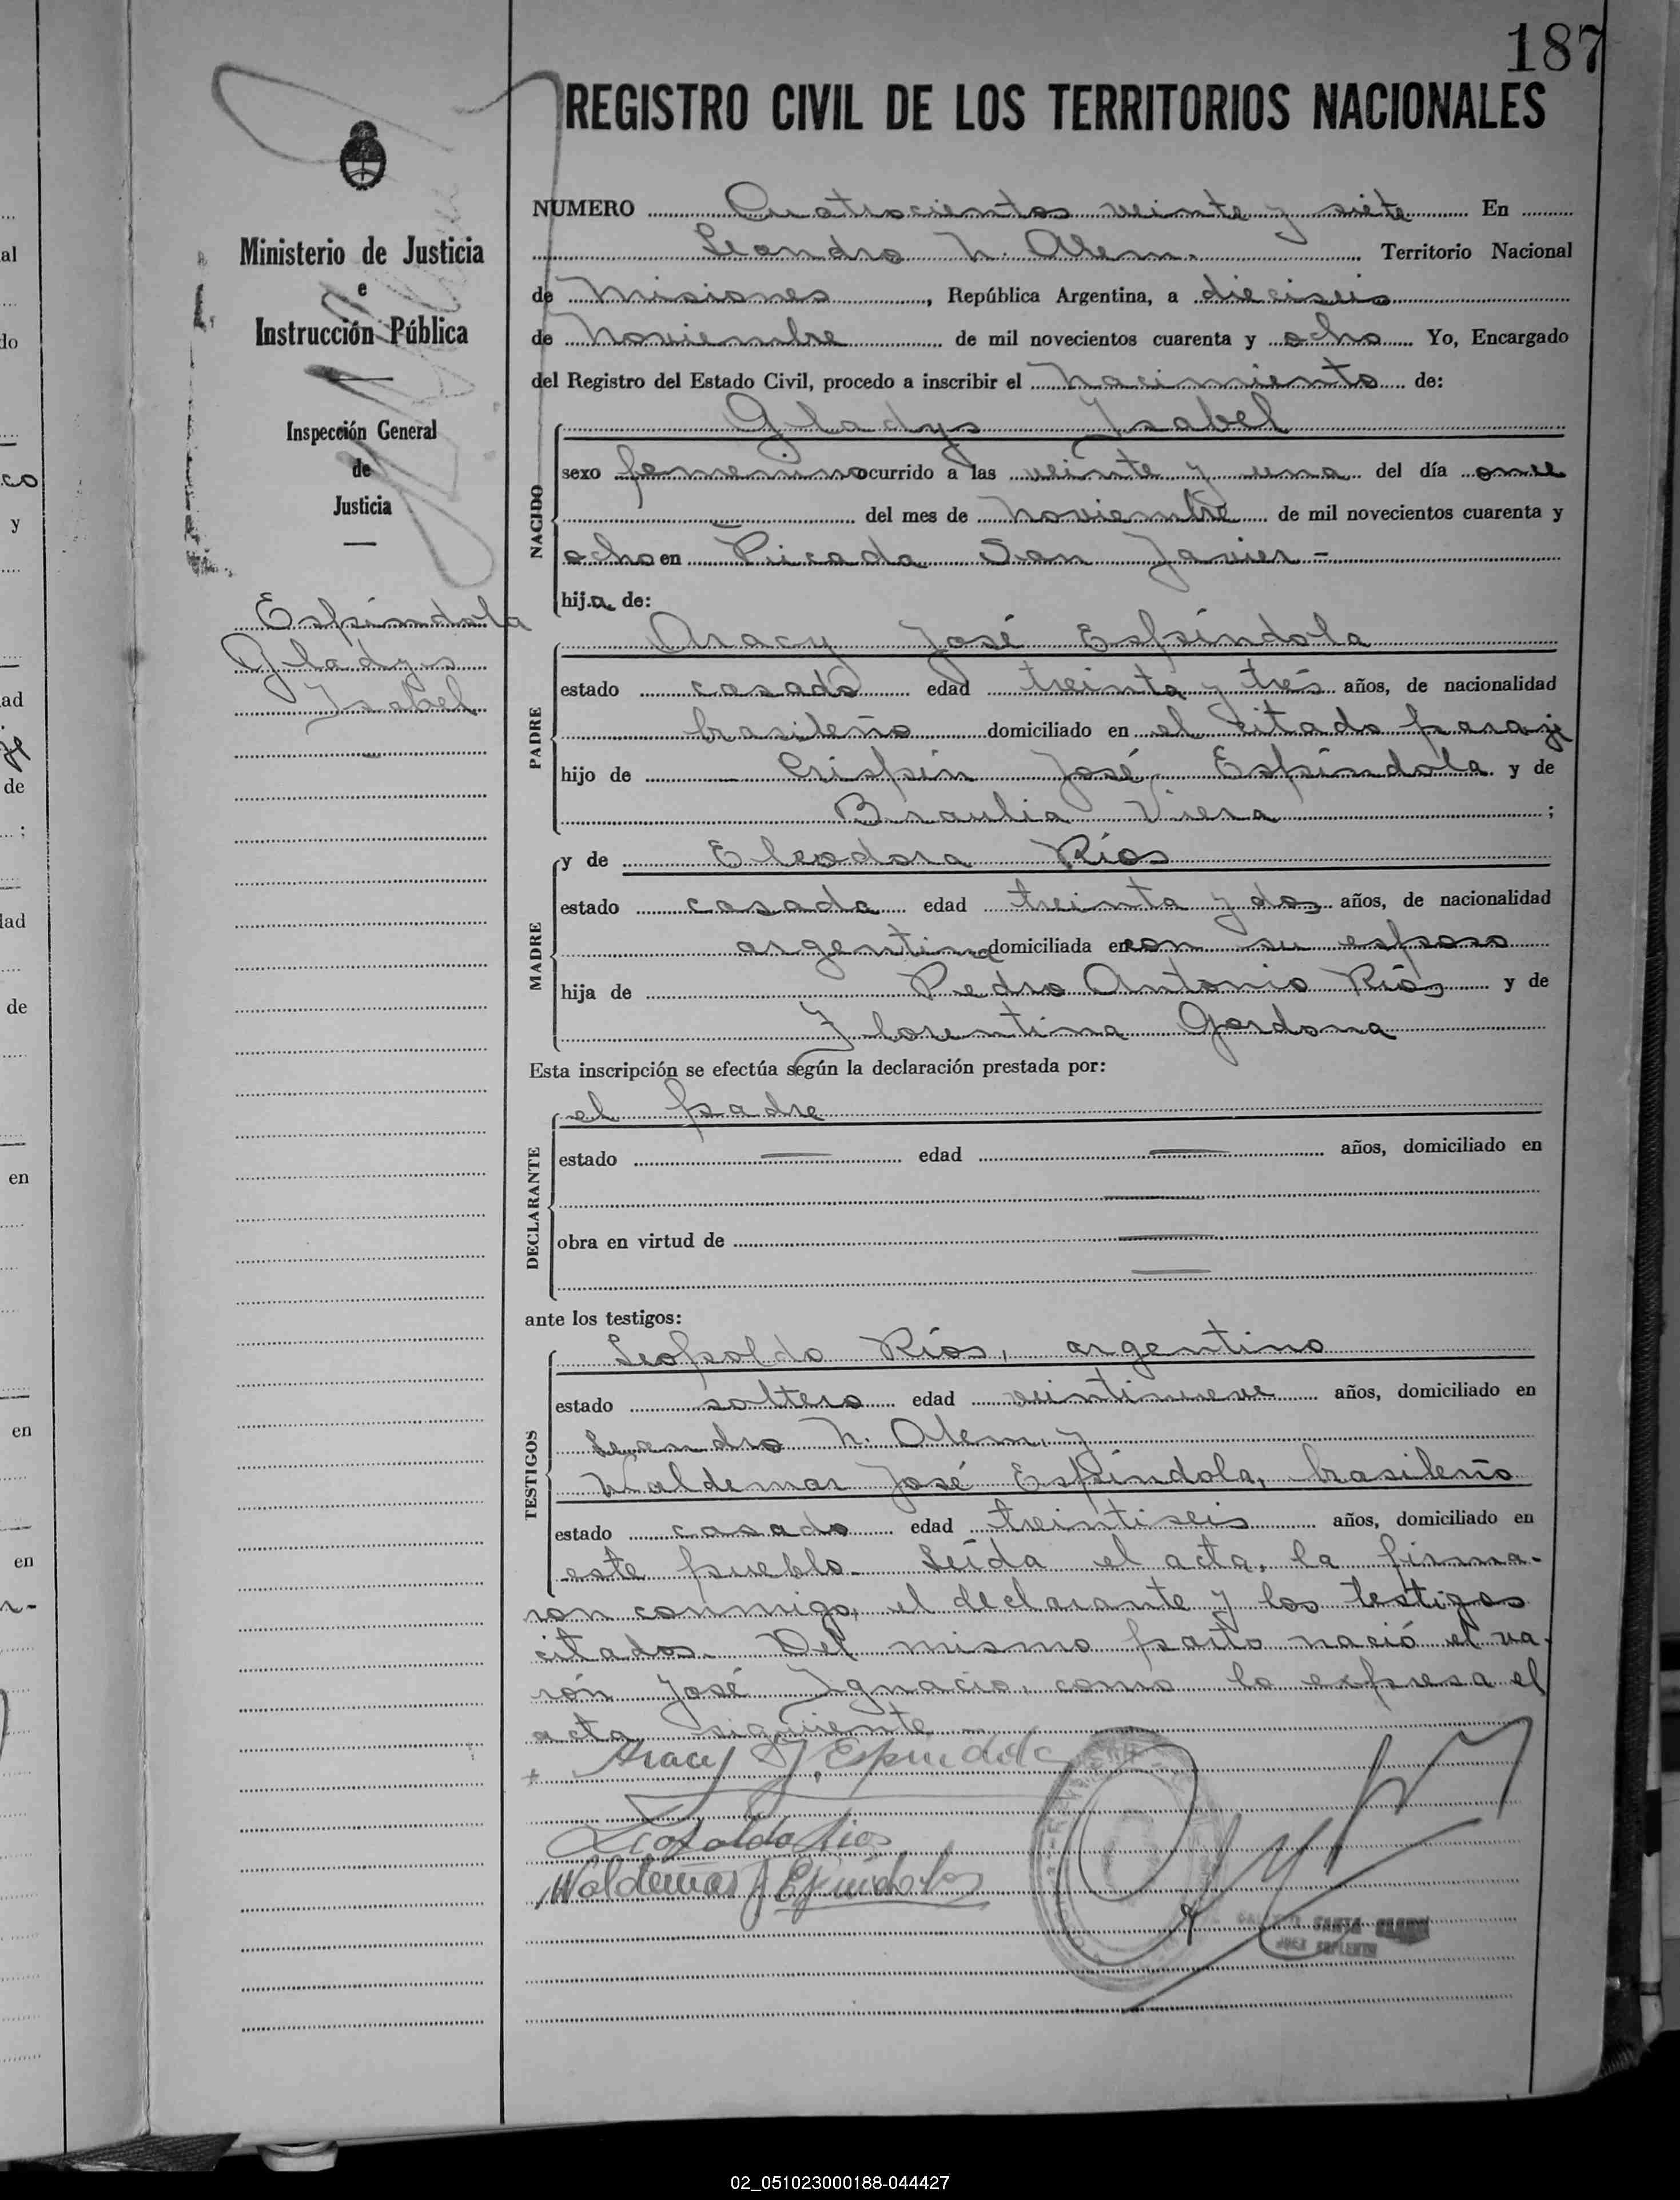 187
REGISTRO CIVIL DE LOS TERRITORIOS NACIONALES
Ministerio de Justicia
e
Instrucción Pública
Inspección General
de
Justicia
Espíndola
Gladys
Isabel
NUMERO Cuatrocientos veinte y siete En
Leandro N. Alem. Territorio Nacional
de Misiones, República Argentina, a dieciseis
de Noviembre de mil novecientos cuarenta y ocho Yo, Encargado
del Registro del Estado Civil, procedo a inscribir el nacimiento de:
NACIDO
Gladys Isabel
sexo femenino ocurrido a las veinte y una del día once
del mes de Noviembre de mil novecientos cuarenta y
ocho en Picada San Javier -
hija de:
PADRE
Aracy José Espíndola
estado casado edad treinta y tres años, de nacionalidad
brasileño domiciliado en el citado paraje
hijo de Crispín José Espíndola y de
Braulia Viera ;
MADRE
y de Eleodora Ríos
estado casada edad treinta y dos años, de nacionalidad
argentina domiciliada en con su esposo
hija de Pedro Antonio Ríos y de
Florentina Gordona
Esta inscripción se efectúa según la declaración prestada por:
DECLARANTE
el padre
estado — edad — años, domiciliado en
—
obra en virtud de —
—
ante los testigos:
TESTIGOS
Leopoldo Ríos, argentino
estado soltero edad veintinueve años, domiciliado en
Leandro N. Alem, y
Waldemar José Espíndola, brasileño
estado casado edad treintiseis años, domiciliado en
este pueblo. Leída el acta, la firma-
ron conmigo, el declarante y los testigos
citados. Del mismo parto nació el va-
rón José Ignacio, como lo expresa el
acta siguiente -
Aracy J. Espindola
Leopoldo Rios
Waldemar J Espindola
SANTA
JUEZ SUPLENTE
02_051023000188-044427